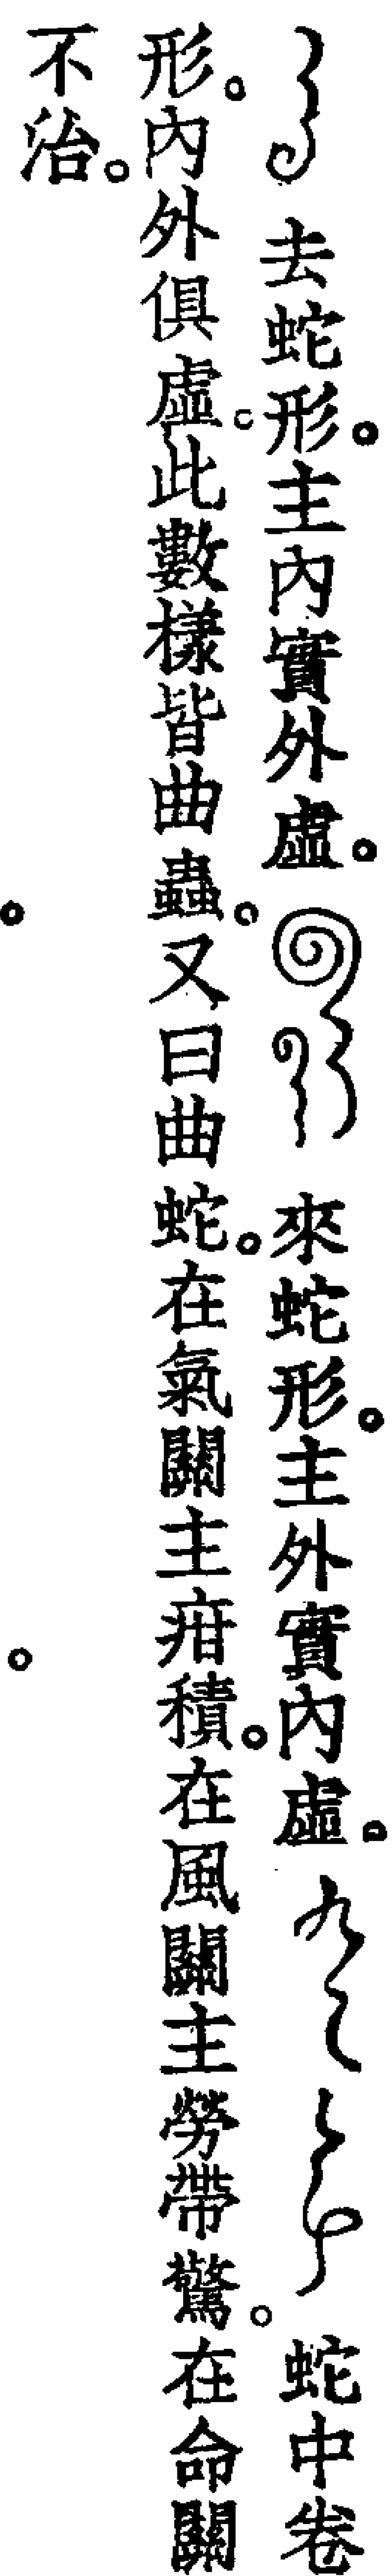 去蛇形。主內實外虛。來蛇形。主外實內虛。蛇中卷
形。內外俱虛。此數樣皆曲蟲。又曰曲蛇。在氣關主疳積。在風關主勞帶驚。在命關
不治。